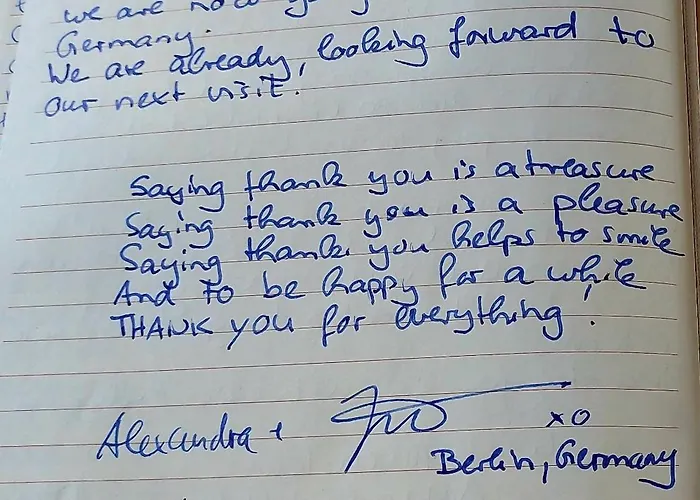 we are now
Germany.
We are already, looking forward to
our next visit.
Saying thank you is a treasure
Saying thank you is a pleasure
Saying thank you helps to smile
And to be happy for a while
THANK YOU for everything!
Alexandra +
xo
Berlin, Germany